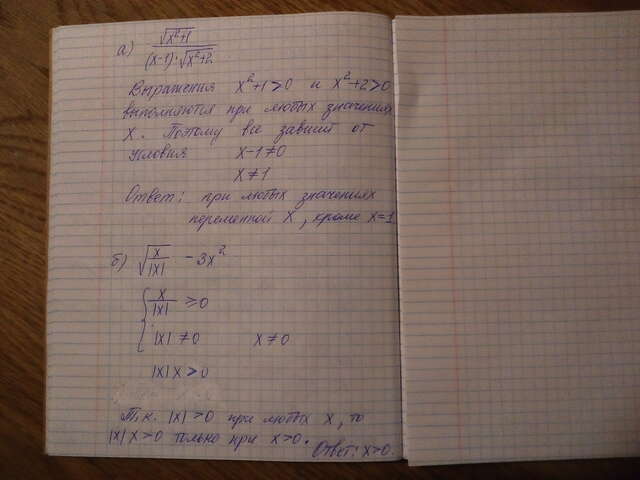 а) √(x²+1) / ((x-1)·√(x²+2))
Выражения x²+1>0 и x²+2>0
выполняются при любых значениях
x. Поэтому все зависит от
условия x-1≠0
x≠1
Ответ: при любых значениях
переменной x, кроме x=1
б) √(x/|x|) - 3x²
{ x/|x| ≥0
|x|≠0 x≠0
|x|x>0
Т.к. |x|>0 при любых x, то
|x|x>0 только при x>0.
Ответ: x>0.